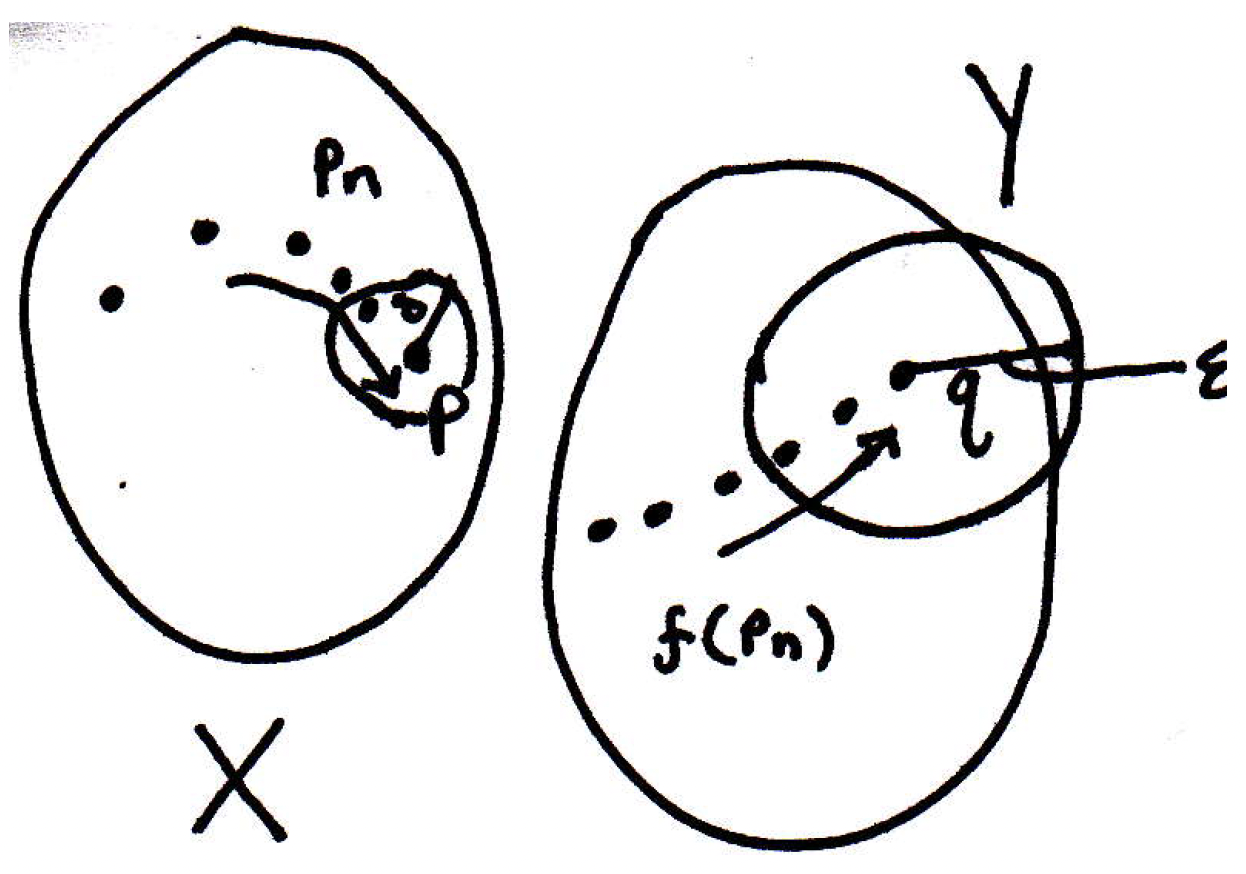 Pn
p
X
Y
q
ε
f(Pn)